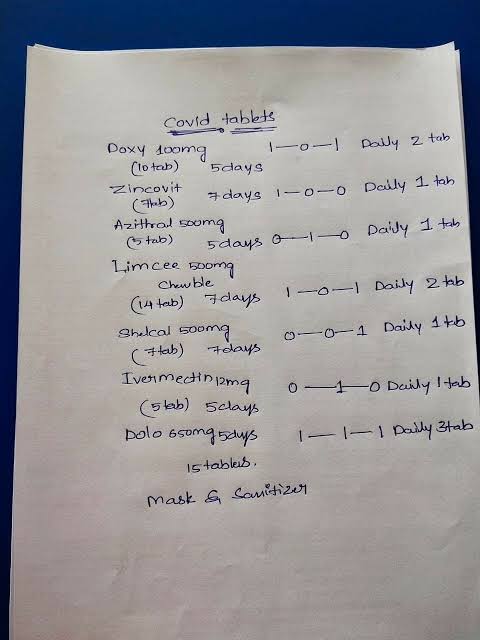 Covid tablets
Doxy 100mg 1—0—1 Daily 2 tab
(10tab) 5days
Zincovit 7days 1—0—0 Daily 1 tab
(7tab)
Azithral 500mg
(5tab) 5days 0—1—0 Daily 1 tab
Limcee 500mg
Chewble
(14tab) 7days 1—0—1 Daily 2 tab
Shelcal 500mg 0—0—1 Daily 1 tab
(7tab) 7days
Ivermectin 12mg 0—1—0 Daily 1 tab
(5tab) 5days
Dolo 650mg 5dys 1—1—1 Daily 3tab
15 tablets.
Mask & Sanitizer